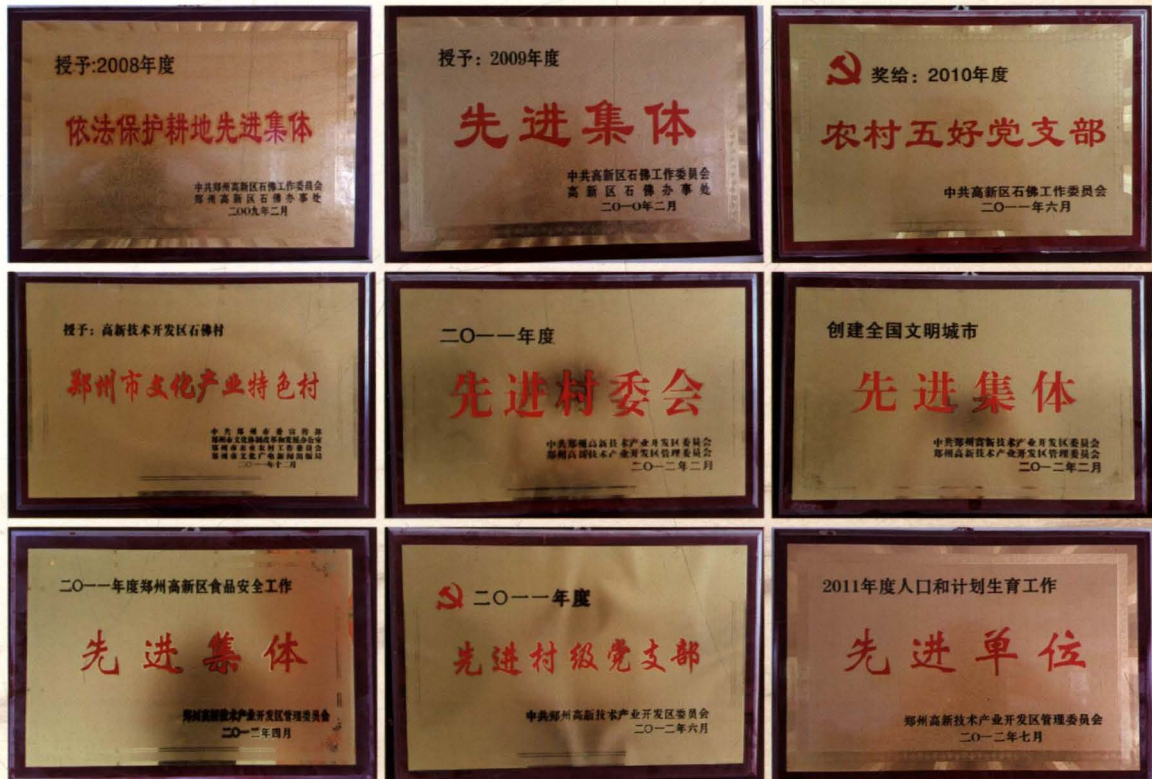 授予:2008年度
依法保护耕地先进集体
中共郑州高新区石佛工作委员会
郑州高新区石佛办事处
二00九年二月
授予：2009年度
先进集体
中共高新区石佛工作委员会
高新区石佛办事处
二○一○年二月
奖给：2010年度
农村五好党支部
中共高新区石佛工作委员会
二○一一年六月
授予：高新技术开发区石佛村
郑州市文化产业特色村
中共郑州市委宣传部
郑州市文化体制改革和发展办公室
郑州市农业农村工作委员会
郑州市文化广电新闻出版局
二○一一年十二月
二○一一年度
先进村委会
中共郑州高新技术产业开发区委员会
郑州高新技术产业开发区管理委员会
二○一二年二月
创建全国文明城市
先进集体
中共郑州高新技术产业开发区委员会
郑州高新技术产业开发区管理委员会
二○一二年二月
二○一一年度郑州高新区食品安全工作
先进集体
郑州高新技术产业开发区管理委员会
二○一二年四月
二○一一年度
先进村级党支部
中共郑州高新技术产业开发区委员会
二○一二年六月
2011年度人口和计划生育工作
先进单位
郑州高新技术产业开发区管理委员会
二○一二年七月